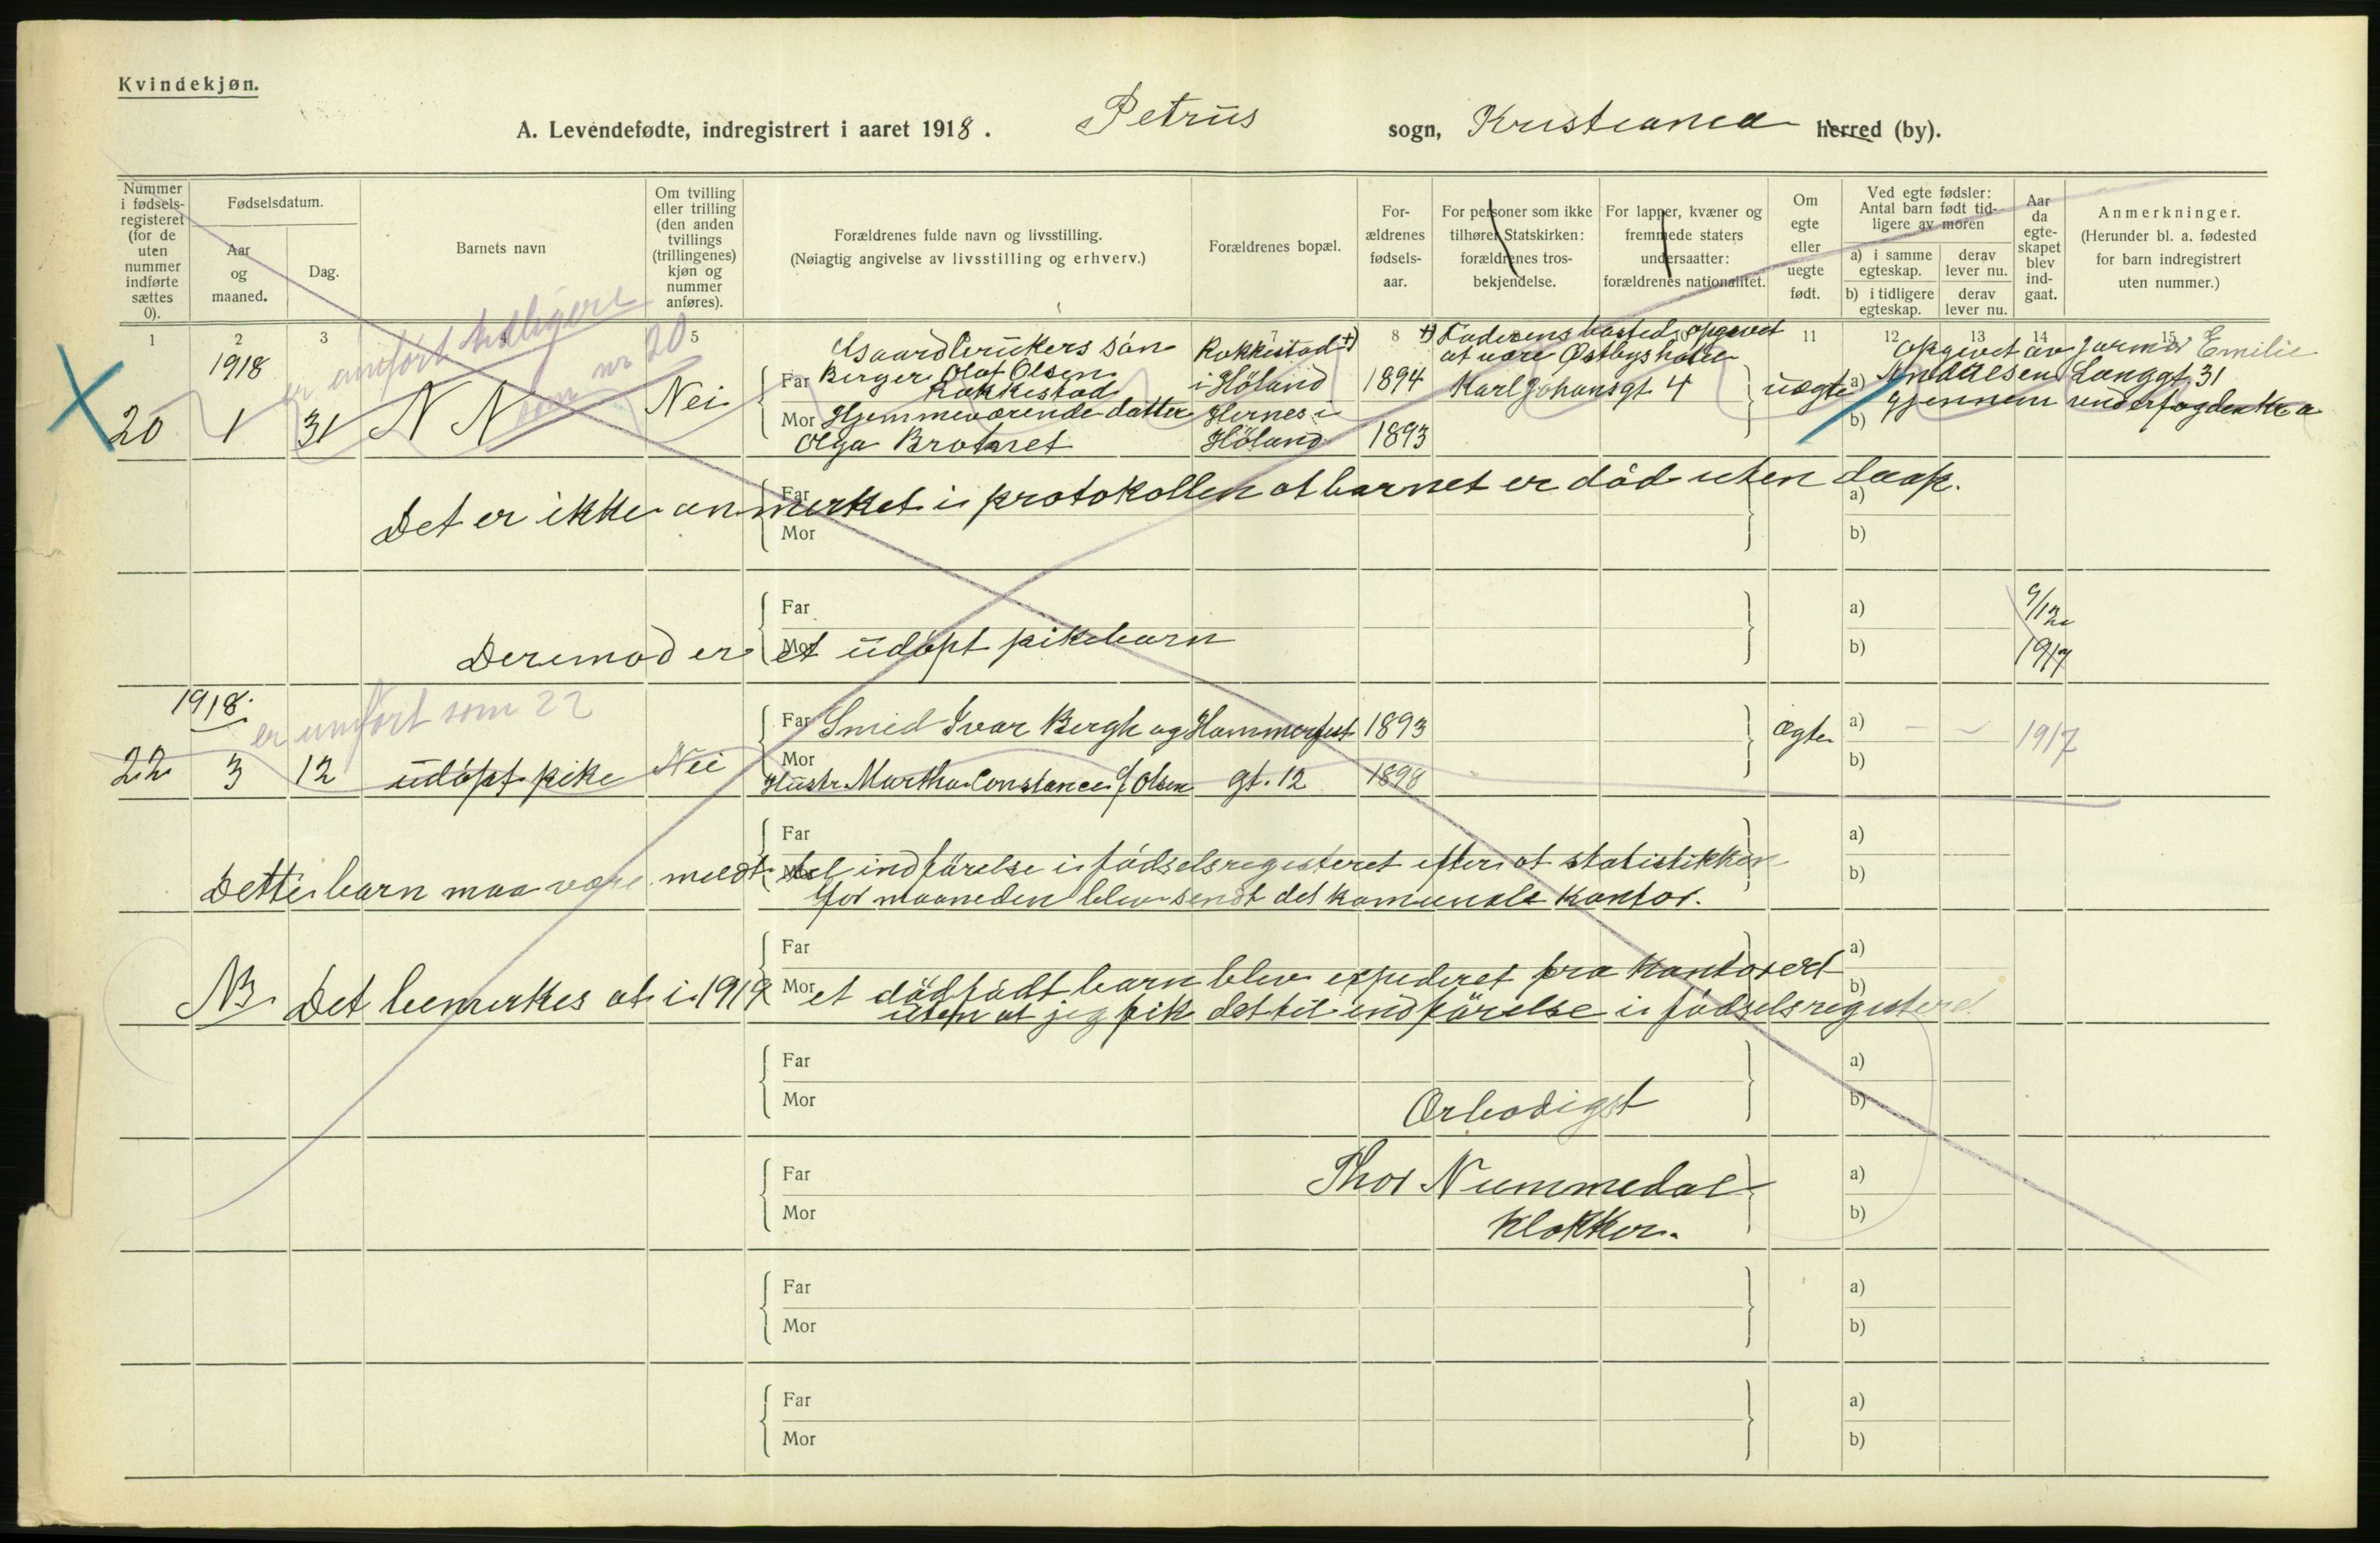 Kvindekjøn.
A. Levendefødte, indregistrert i aaret 1918. Petrus sogn, Kristiania herred (by).
Nummer i fødselsregisteret (for de uten nummer indførte sættes 0).
Fødselsdatum.
Aar og maaned.
Dag.
Barnets navn
Om tvilling eller trilling (den anden tvillings (trillingenes) kjøn og nummer anføres).
Forældrenes fulde navn og livsstilling.
(Nøiagtig angivelse av livsstilling og erhverv.)
Forældrenes bopæl.
Forældrenes fødselsaar.
For personer som ikke tilhører Statskirken: forældrenes trosbekjendelse.
For lapper, kvæner og fremmede staters undersaatter: forældrenes nationalitet.
Om egte eller uegte født.
Ved egte fødsler: Antal barn født tidligere av moren
a) i samme egteskap. derav lever nu.
b) i tidligere egteskap. derav lever nu.
Aar da egteskapet blev indgaat.
Anmerkninger.
(Herunder bl. a. fødested for barn indregistrert uten nummer.)
1 2 3 5 7 8 11 12 13 14 15
er indført tidligere
som nr 20
1918
20 1 31 N N Nei
Gaardbrukers søn
Far Berger Olaf Olsen
Rakkestad
Mor Hjemmeværende datter
Olga Brotaret
Rakkestad +)
i Høland
Hernes i
Høland
1894
1893
+) Faderens bosted opgivet
at være Østbys hotel
Karl Johansgt 4
uegte a)
b)
Opgivet av jormor Emilie
Langgt. 31
Gjennem underfogden Kr a
Det er ikke anmerket i protokollen at barnet er død uten daap.
Far
Mor
a)
b)
Far
Mor
a)
b)
Deremod er et udøpt pikebarn
9/12
1917
1918.
er indført som 22
22 3 12 udøpt pike Nei
Far Smed Ivar Bergh og Hammerfest 1893
Mor
Hustr. Martha Constance f. Olsen gt. 12 1898
Ægte a) – –
b)
1917
Far
Mor
a)
b)
Dette barn maa være meldt til indførelse i fødselsregisteret efter at statistikken
for maaneden blev sendt det komunale kontor.
Far
Mor
a)
b)
NB. Det bemerkes at i 1919 et dødfødt barn blev expederet fra kontoret
uten at jeg fik det til indførelse i fødselsregisteret
Far
Mor
a)
b)
Ærbødigst
Far
Mor
a)
b)
Thor Nummedal
Klokker.
Far
Mor
a)
b)
Far
Mor
a)
b)